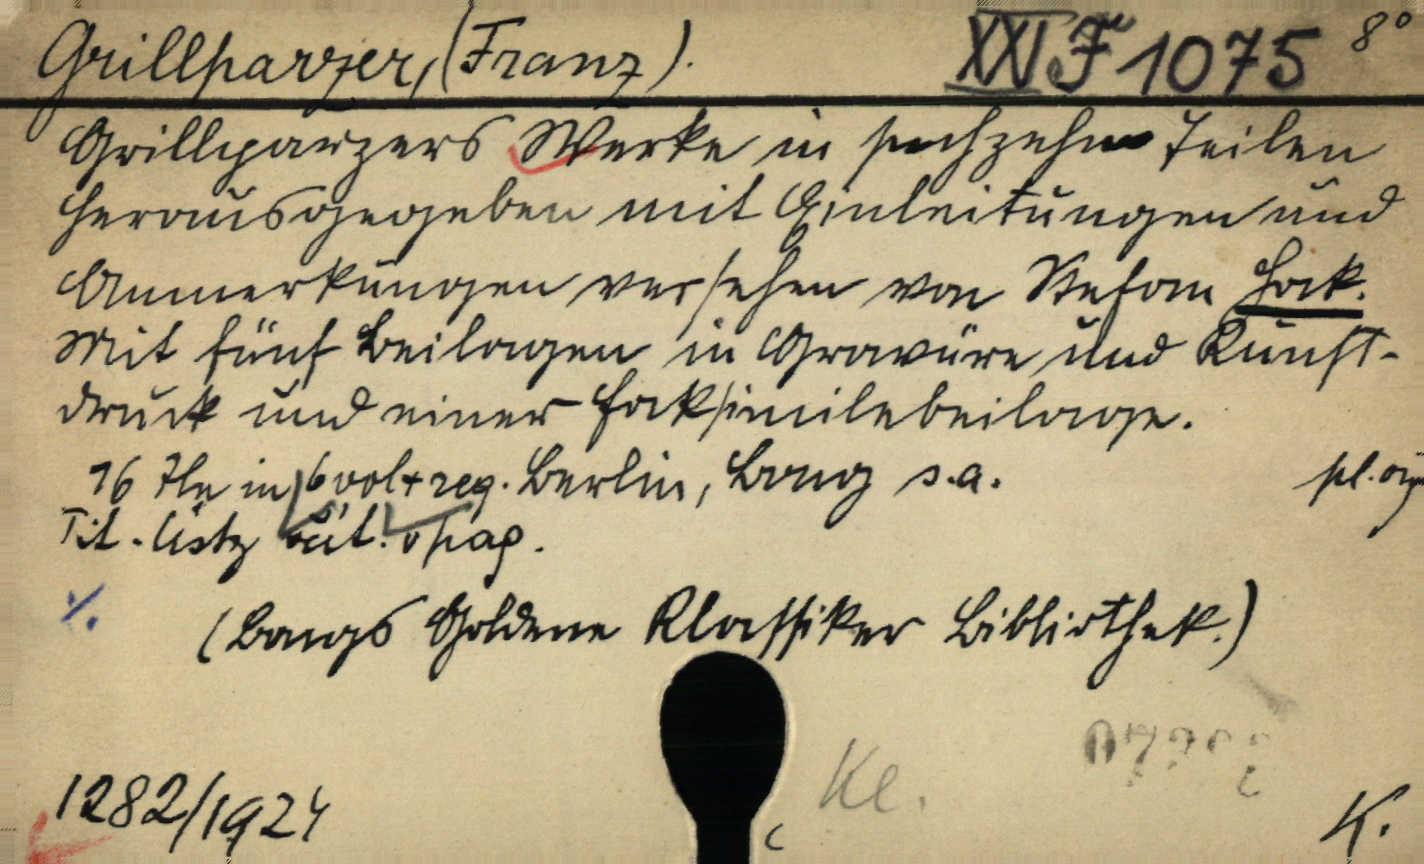 Grillparzer, (Franz).
XXI F 1075 8°
Grillparzers Werke in sechzehn Teilen
herausgegeben mit Einleitungen und
Anmerkungen versehen von Stefan Hock.
Mit fünf Beilagen in Gravüre und Kunst-
druck und einer Faksimilebeilage.
16 Tle in 6 vol + reg. Berlin, Bong s.a.
Tit. pag.
(Bongs Goldene Klassiker Bibliothek.)
Kl.
1282/1924
K.